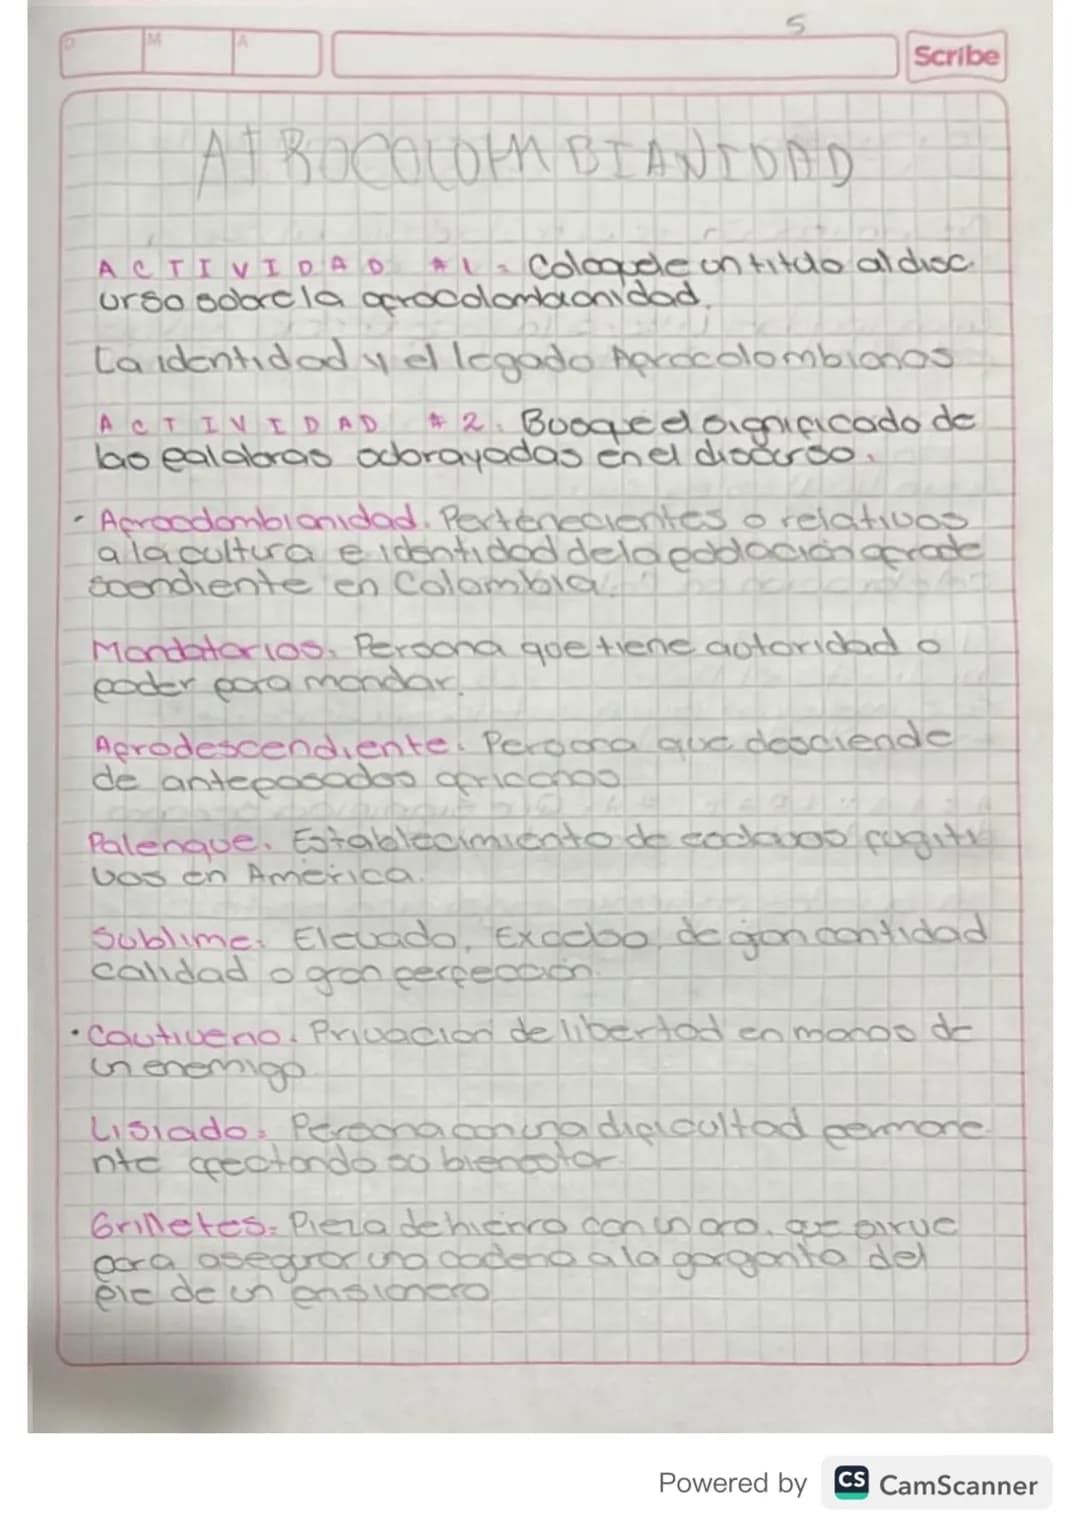 5
D M A Scribe
AFROCOLOMBIANIDAD
ACTIVIDAD #1. Coloquele un titulo al disc
urso sobre la afrocolombianidad.
La identidad y el legado Afrocolombianos
ACTIVIDAD #2. Busque el significado de
las palabras subrayadas en el discurso.
• Afrocolombianidad. Pertenecientes o relativos
a la cultura e identidad de la poblacion afrode
scendiente en Colombia.
Mandatarios. Persona que tiene autoridad o
poder para mandar.
Afrodescendiente. Persona que desciende
de antepasados africanos
Palenque. Establecimiento de esclavos fugiti
vos en America.
Sublime. Elevado, Excelso, de gran cantidad
calidad o gran perfeccion.
• Cautiverio. Privacion de libertad en manos de
un enemigo
Lisiado. Persona con una dificultad permane
nte afectando su bienestar.
Grilletes. Pieza de hierro con un aro, que sirve
para asegurar una cadena a la garganta del
pie de un
Powered by CS CamScanner